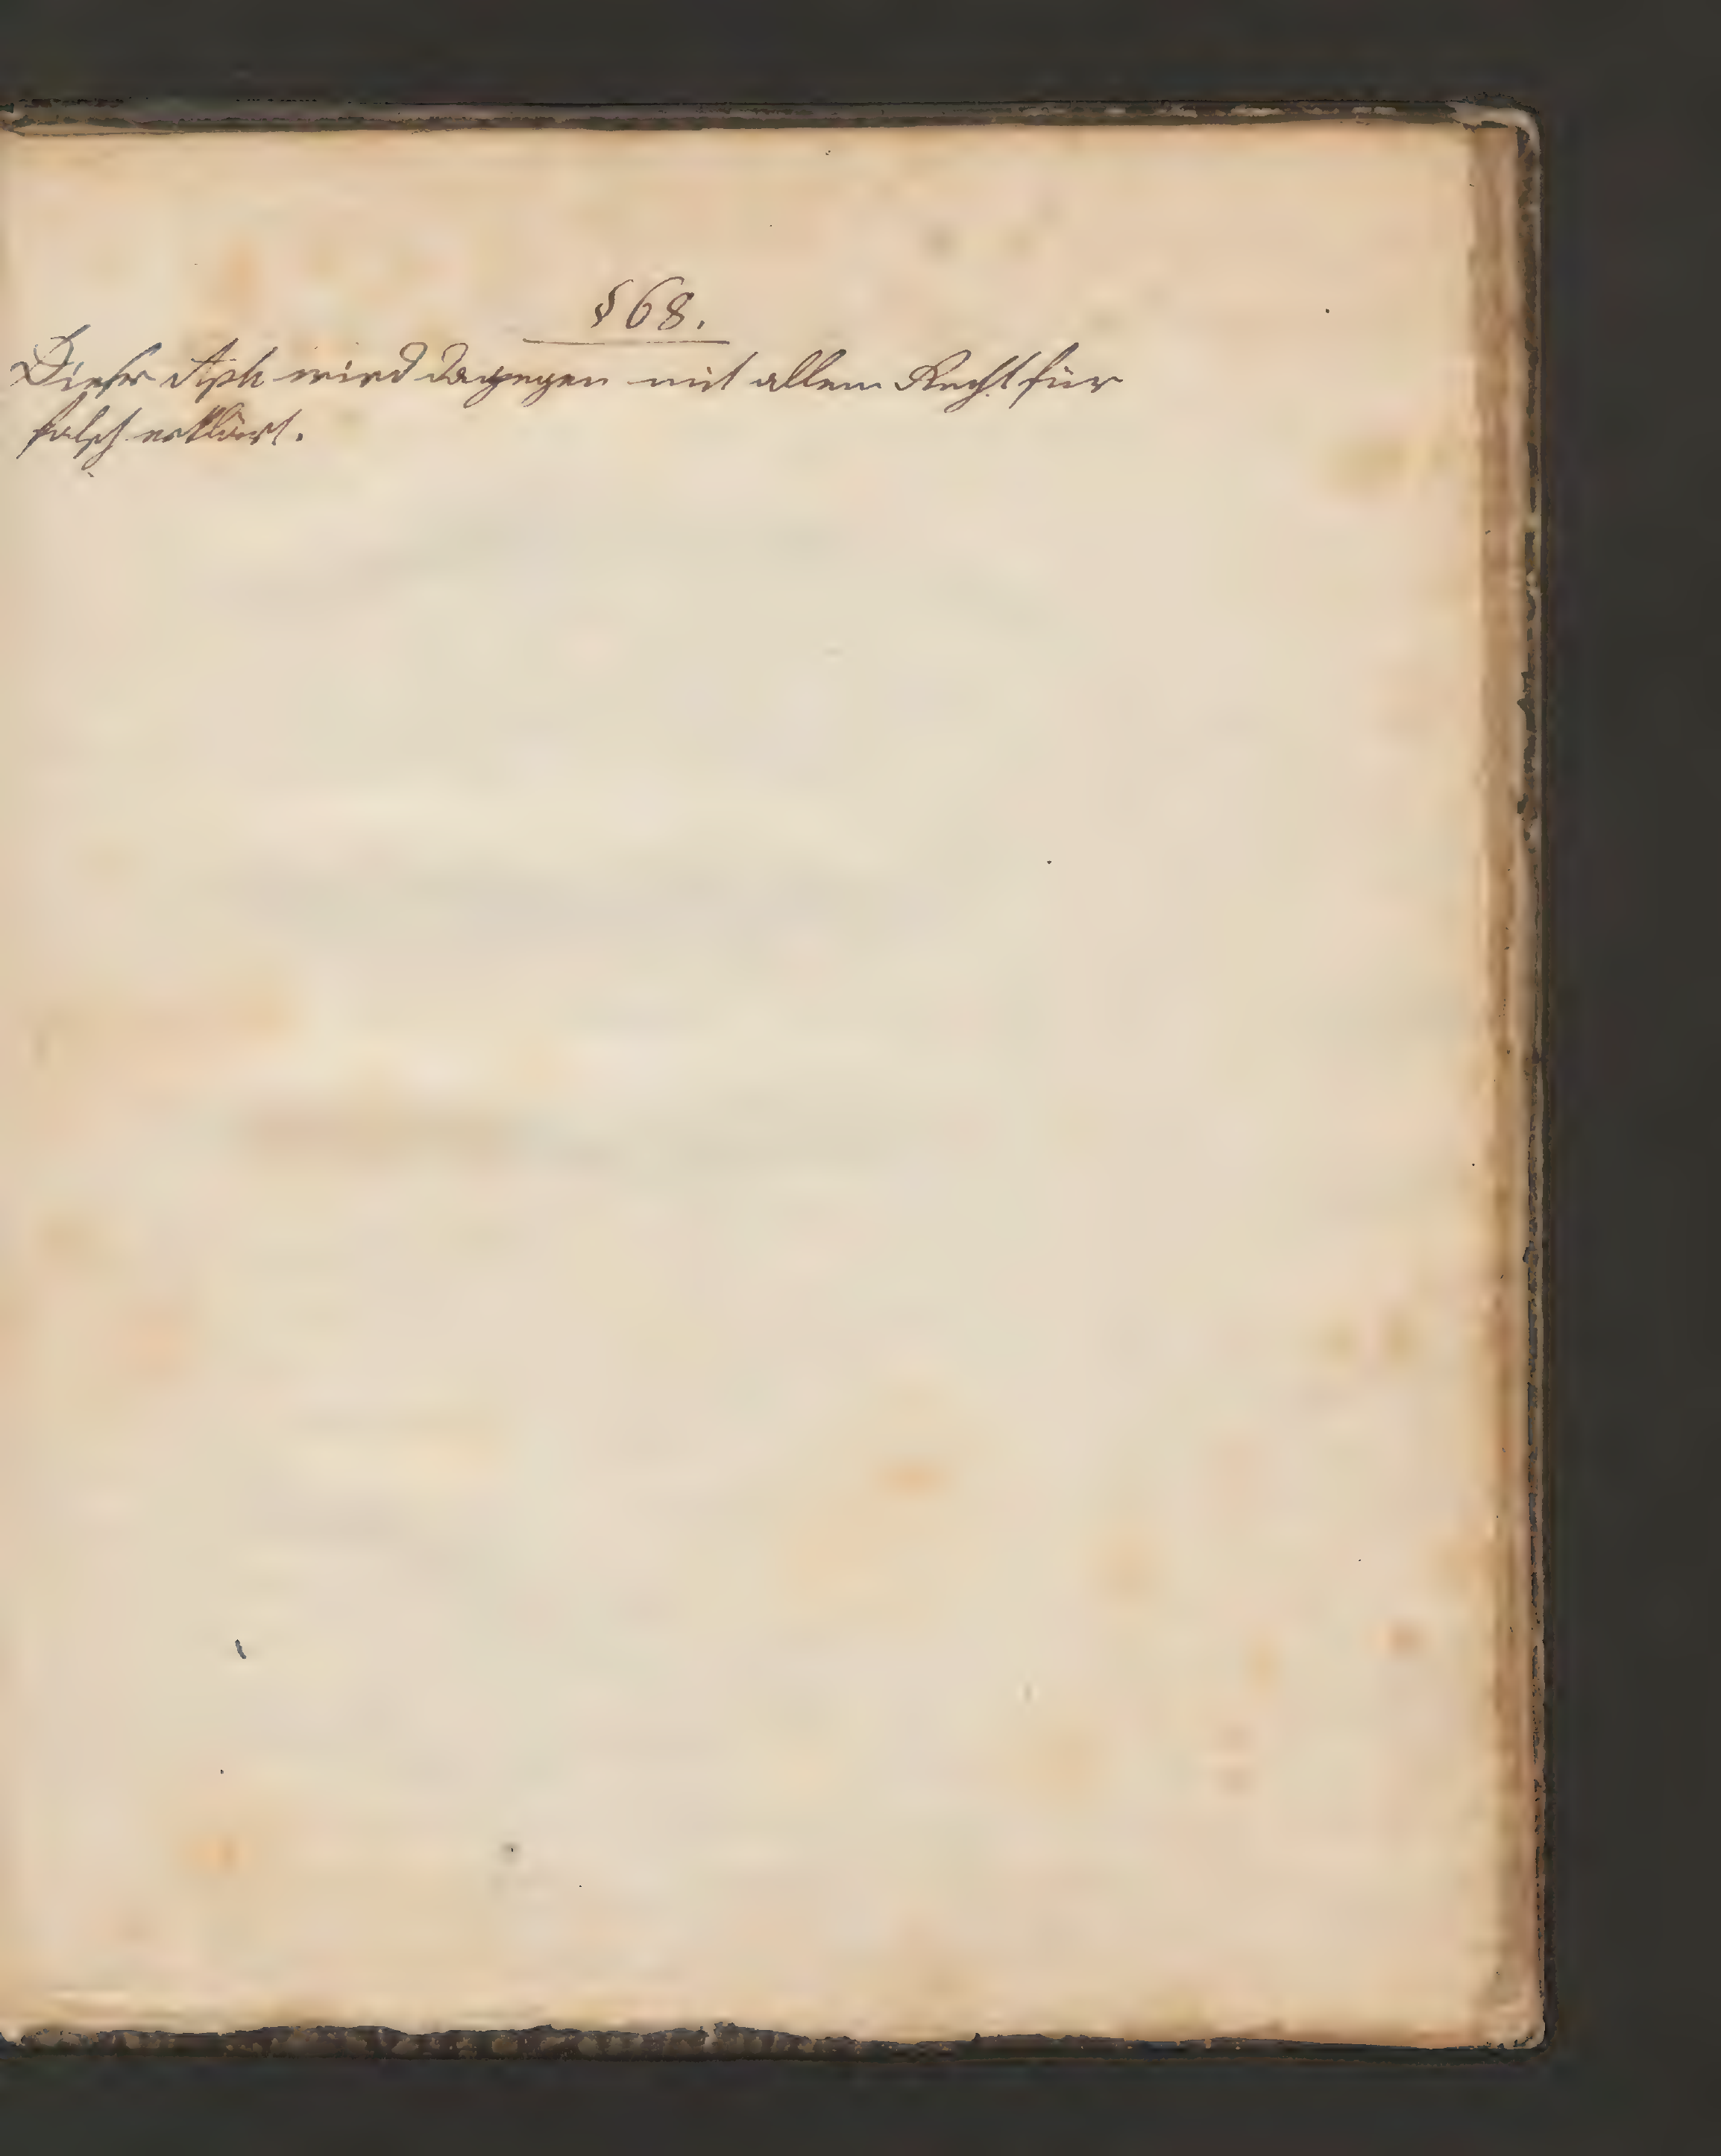 § 68.
Dieser Aph wird dagegen mit allem Recht für
falsch erklärt.